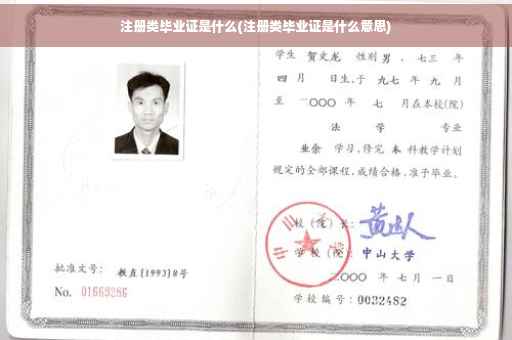 注册类毕业证是什么(注册类毕业证是什么意思)
学生 贺文龙 性别 男 、七三 年
四 月 日生,于 九七 年 九 月
至 二〇〇〇 年 七 月在本校(院)
法 学 专业
业余 学习,修完 本 科教学计划
规定的全部课程,成绩合格,准予毕业。
校 (院) 长:
学 校 (院): 中山大学
二〇〇〇 年 七 月 一 日
学校编号: 0032482
批准文号: 教直[1993]8号
No. 01663286